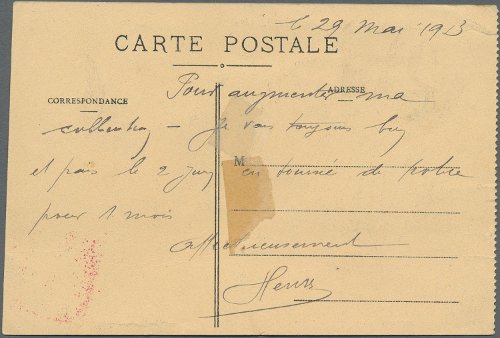 le 29 Mai 1913
CARTE POSTALE
CORRESPONDANCE
ADRESSE
Pour augmenter ma
collection — Je vais toujours bien
M
et pars le 2 juin en tournée de
pour 1 mois
affectueusement
Henri